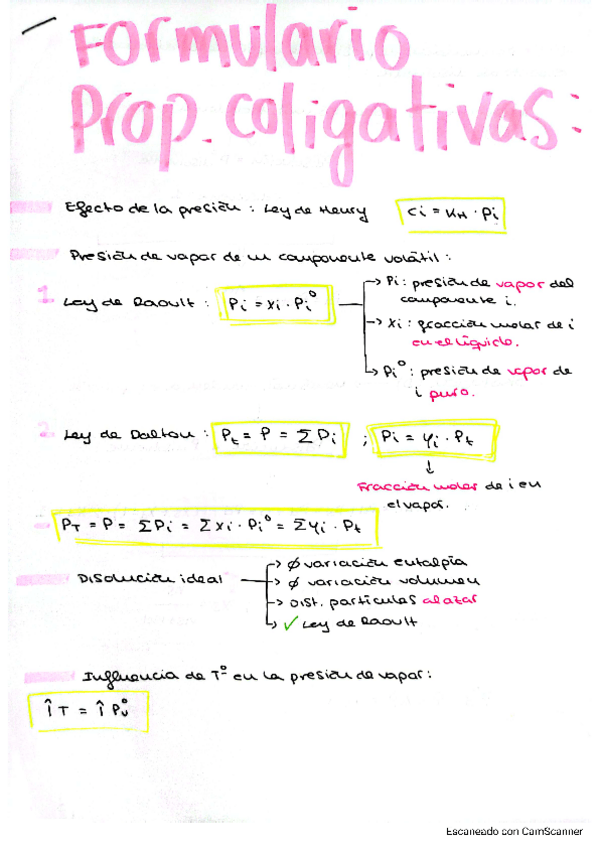 Formulario
Prop. coligativas:
Efecto de la presión: Ley de Henry Ci = KH · Pi
Presión de vapor de un componente volátil:
1. Ley de Raoult: Pi = xi · Pi°
→ Pi: presión de vapor del
componente i.
→ xi: fracción molar de i
en el líquido.
→ Pi°: presión de vapor de
i puro.
2. Ley de Dalton: Pt = P = ΣPi ; Pi = yi · Pt
↓
Fracción molar de i en
el vapor.
PT = P = ΣPi = Σxi · Pi° = Σyi · Pt
Disolución ideal
→ ∅ variación entalpía
→ ∅ variación volumen
→ Dist. partículas al azar
→ ✓ Ley de Raoult
Influencia de Tª en la presión de vapor:
↑T = ↑Pv°
Escaneado con CamScanner